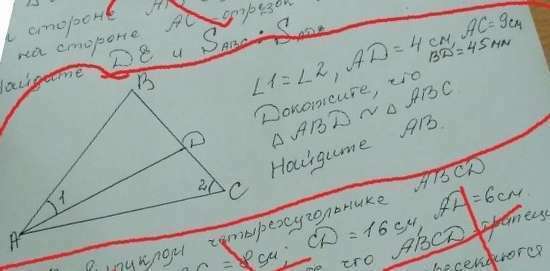 стороне
на стороне AC отрезок
Найдите DE и S ABC : S ADE
B
∠1=∠2, AD = 4 см, AC = 9 см
BD = 45 мм
Докажите, что
△ABD ~ △ABC.
Найдите AB.
D
1
2
C
A
выпуклом четырехугольнике ABCD
= 8 см; CD = 16 см, AD = 6 см.
что ABCD - трапеция